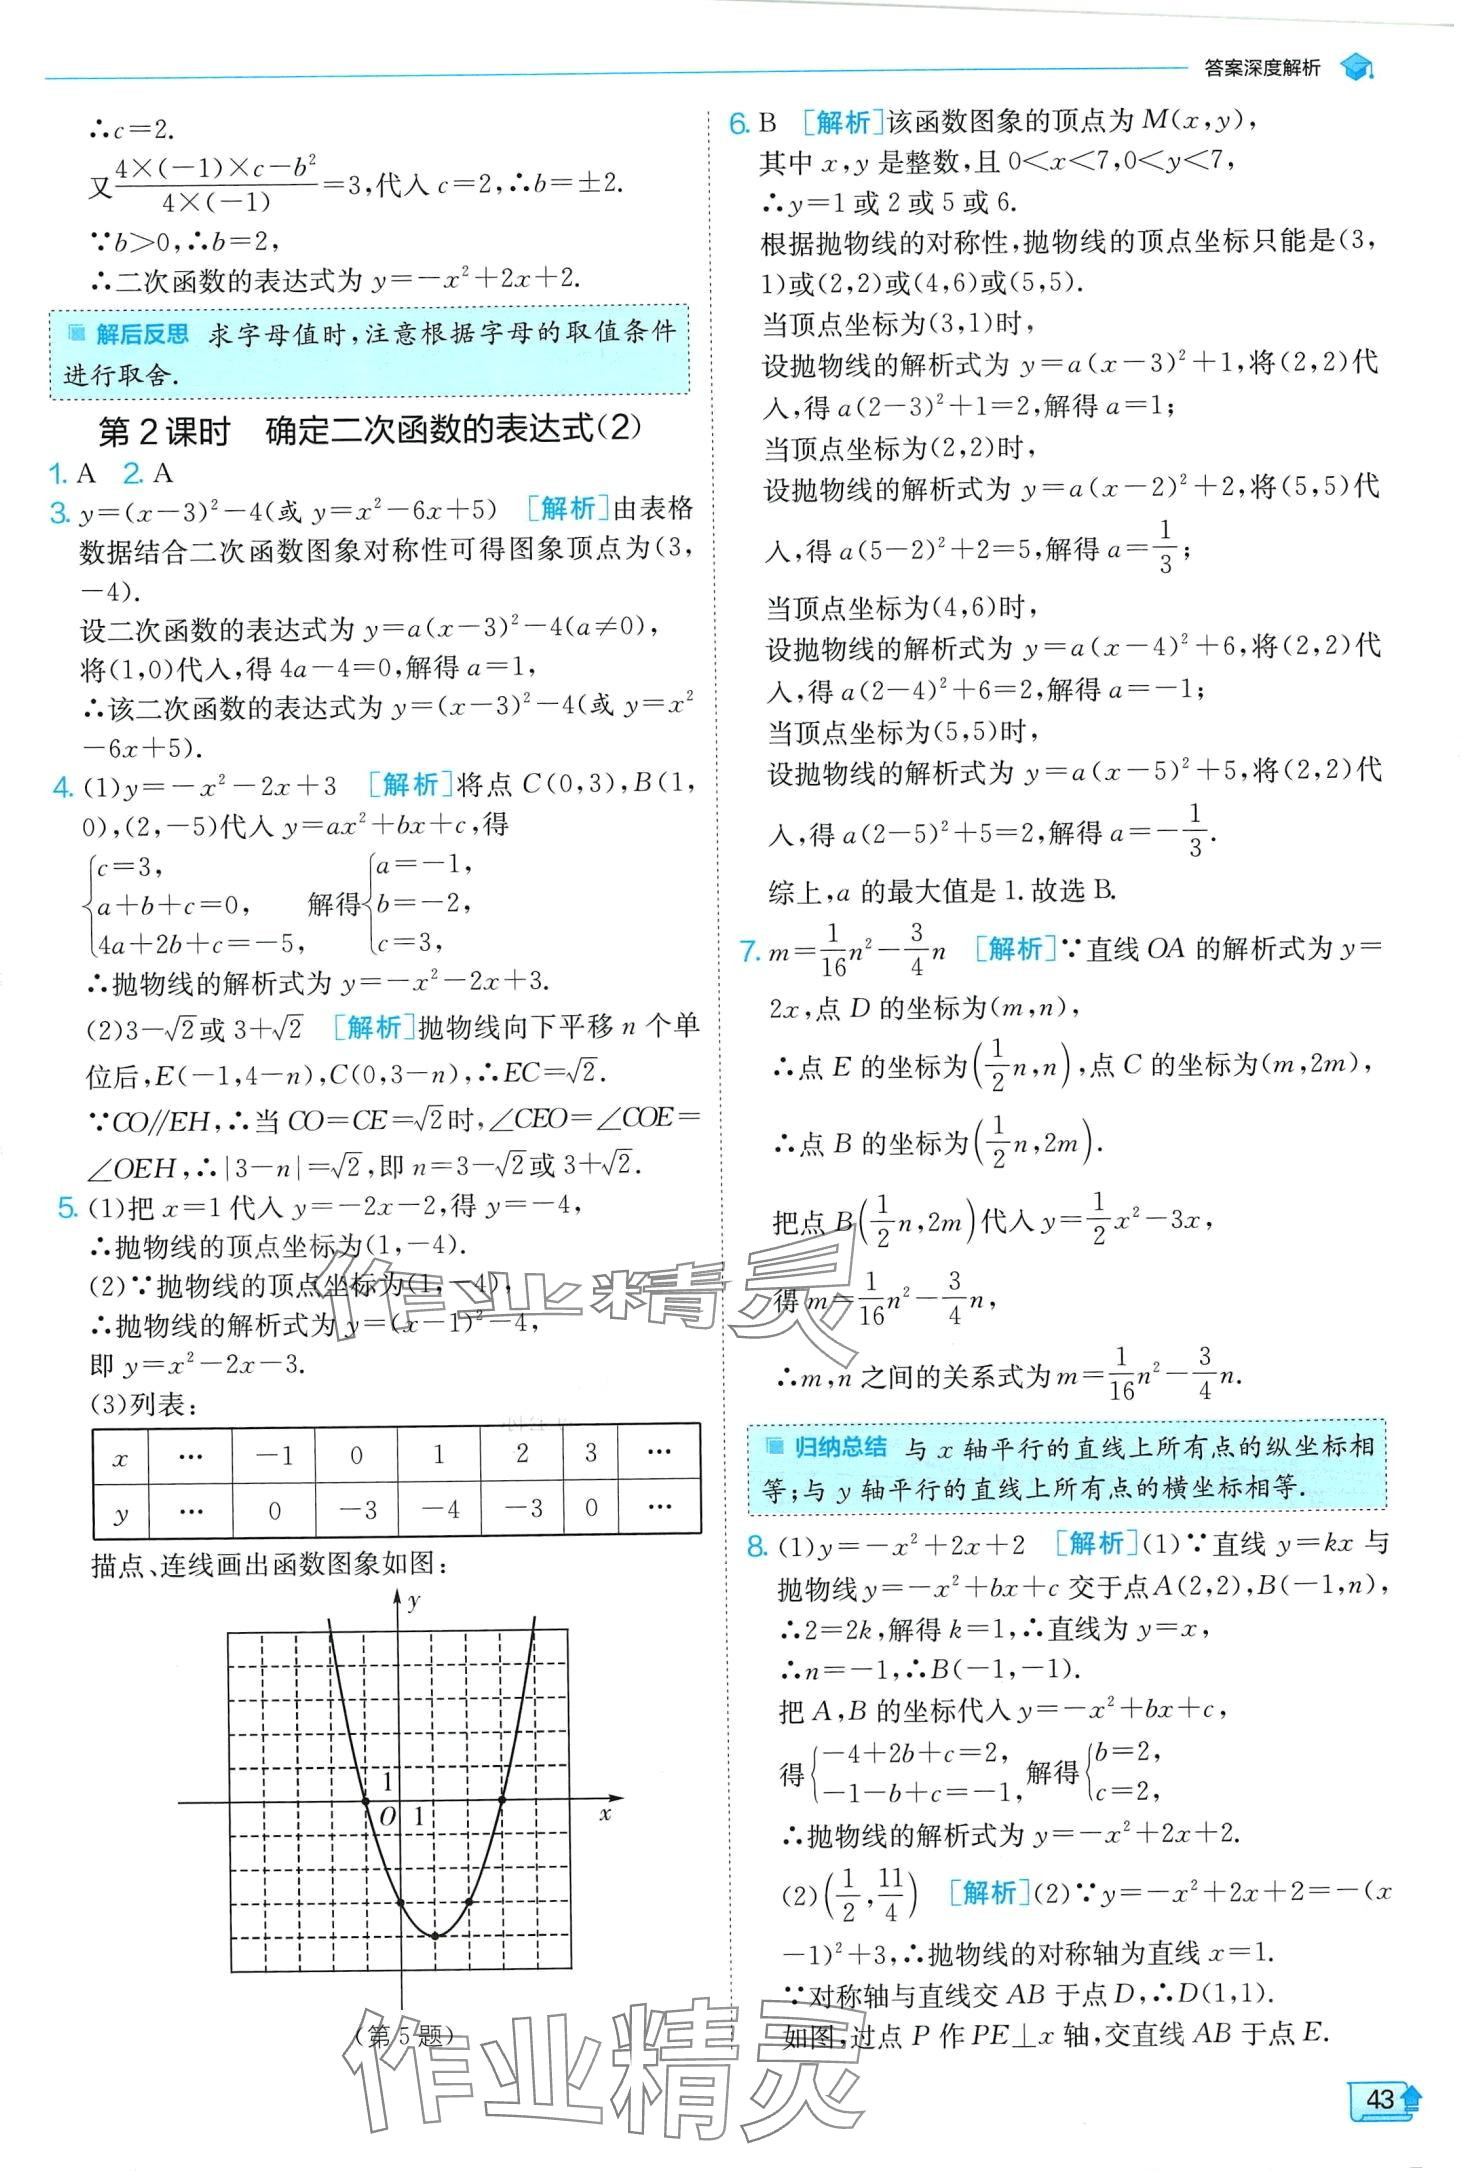 答案深度解析
∴c=2.
又\frac{4×(-1)×c-b²}{4×(-1)}=3,代入 c=2,∴b=±2.
∵b>0,∴b=2,
∴二次函数的表达式为 y=-x²+2x+2.
解后反思 求字母值时,注意根据字母的取值条件
进行取舍.
第2课时 确定二次函数的表达式(2)
1. A 2. A
3. y=(x-3)²-4(或 y=x²-6x+5) [解析]由表格
数据结合二次函数图象对称性可得图象顶点为(3,
-4).
设二次函数的表达式为 y=a(x-3)²-4(a≠0),
将(1,0)代入,得 4a-4=0,解得 a=1,
∴该二次函数的表达式为 y=(x-3)²-4(或 y=x²
-6x+5).
4. (1)y=-x²-2x+3 [解析]将点 C(0,3),B(1,
0),(2,-5)代入 y=ax²+bx+c,得
{c=3, a+b+c=0, 4a+2b+c=-5, 解得{a=-1, b=-2, c=3,
∴抛物线的解析式为 y=-x²-2x+3.
(2)3-√2或 3+√2 [解析]抛物线向下平移 n 个单
位后,E(-1,4-n),C(0,3-n),∴EC=√2.
∵CO//EH,∴当 CO=CE=√2时,∠CEO=∠COE=
∠OEH,∴|3-n|=√2,即 n=3-√2或 3+√2.
5. (1)把 x=1 代入 y=-2x-2,得 y=-4,
∴抛物线的顶点坐标为(1,-4).
(2)∵抛物线的顶点坐标为(1,-4),
∴抛物线的解析式为 y=(x-1)²-4,
即 y=x²-2x-3.
(3)列表:
x … -1 0 1 2 3 …
y … 0 -3 -4 -3 0 …
描点、连线画出函数图象如图:
y
1
O 1 x
(第 5 题)
6. B [解析]该函数图象的顶点为 M(x,y),
其中 x,y 是整数,且 0<x<7,0<y<7,
∴y=1 或 2 或 5 或 6.
根据抛物线的对称性,抛物线的顶点坐标只能是(3,
1)或(2,2)或(4,6)或(5,5).
当顶点坐标为(3,1)时,
设抛物线的解析式为 y=a(x-3)²+1,将(2,2)代
入,得 a(2-3)²+1=2,解得 a=1;
当顶点坐标为(2,2)时,
设抛物线的解析式为 y=a(x-2)²+2,将(5,5)代
入,得 a(5-2)²+2=5,解得 a=\frac{1}{3};
当顶点坐标为(4,6)时,
设抛物线的解析式为 y=a(x-4)²+6,将(2,2)代
入,得 a(2-4)²+6=2,解得 a=-1;
当顶点坐标为(5,5)时,
设抛物线的解析式为 y=a(x-5)²+5,将(2,2)代
入,得 a(2-5)²+5=2,解得 a=-\frac{1}{3}.
综上,a 的最大值是 1.故选 B.
7. m=\frac{1}{16}n²-\frac{3}{4}n [解析]∵直线 OA 的解析式为 y=
2x,点 D 的坐标为(m,n),
∴点 E 的坐标为(\frac{1}{2}n,n),点 C 的坐标为(m,2m),
∴点 B 的坐标为(\frac{1}{2}n,2m).
把点 B(\frac{1}{2}n,2m)代入 y=\frac{1}{2}x²-3x,
得 m=\frac{1}{16}n²-\frac{3}{4}n,
∴m,n 之间的关系式为 m=\frac{1}{16}n²-\frac{3}{4}n.
归纳总结 与 x 轴平行的直线上所有点的纵坐标相
等;与 y 轴平行的直线上所有点的横坐标相等.
8. (1)y=-x²+2x+2 [解析](1)∵直线 y=kx 与
抛物线 y=-x²+bx+c 交于点 A(2,2),B(-1,n),
∴2=2k,解得 k=1,∴直线为 y=x,
∴n=-1,∴B(-1,-1).
把 A,B 的坐标代入 y=-x²+bx+c,
得{-4+2b+c=2, -1-b+c=-1, 解得{b=2, c=2,
∴抛物线的解析式为 y=-x²+2x+2.
(2)(\frac{1}{2},\frac{11}{4}) [解析](2)∵y=-x²+2x+2=-(x
-1)²+3,∴抛物线的对称轴为直线 x=1.
∵对称轴与直线交 AB 于点 D,∴D(1,1).
如图,过点 P 作 PE⊥x 轴,交直线 AB 于点 E.
43
作业精灵
作业精灵